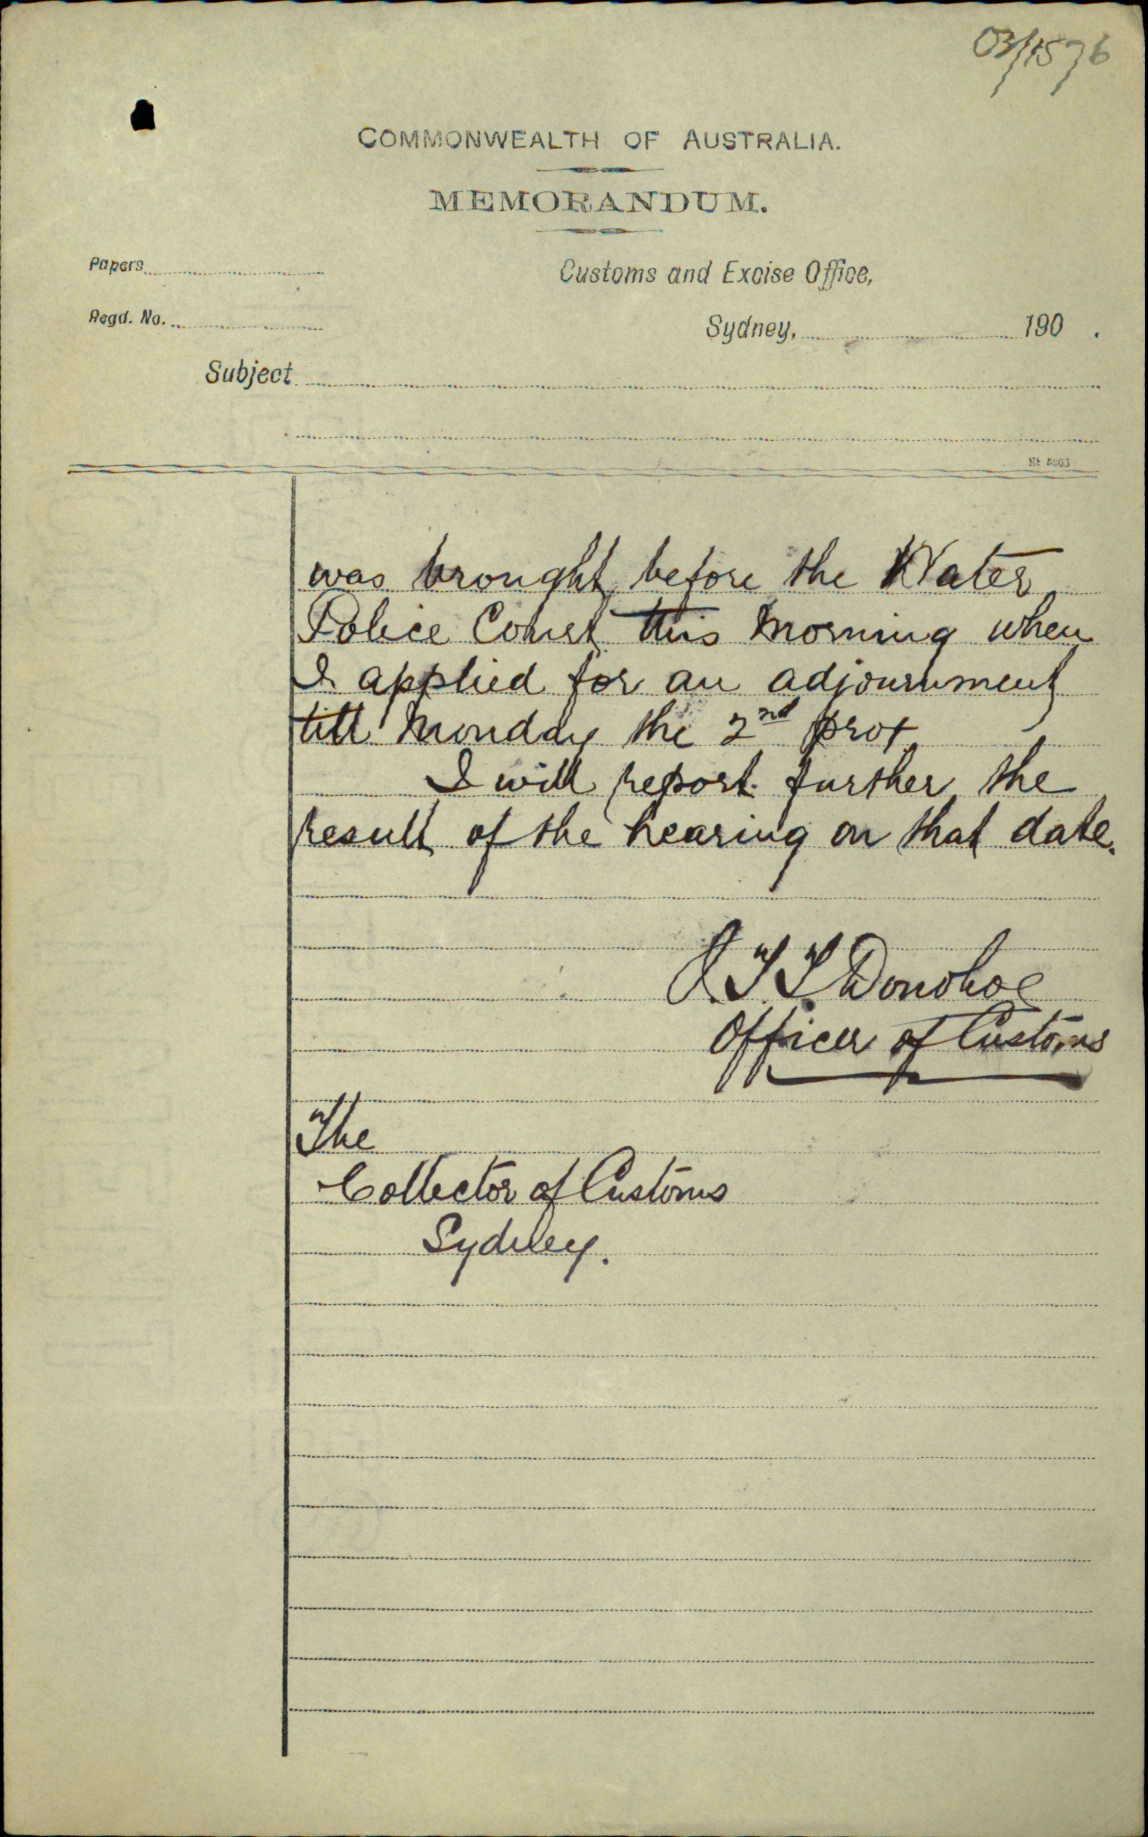 03/1576
COMMONWEALTH OF AUSTRALIA.
MEMORANDUM.
Papers
Customs and Excise Office,
Regd. No.
Sydney, 190 .
Subject
was brought before the Water
Police Court this morning when
I applied for an adjournment
till Monday the 2nd prox
I will report further the
result of the hearing on that date.
J.T.T. Donohoe
Officer of Customs
The
Collector of Customs
Sydney.